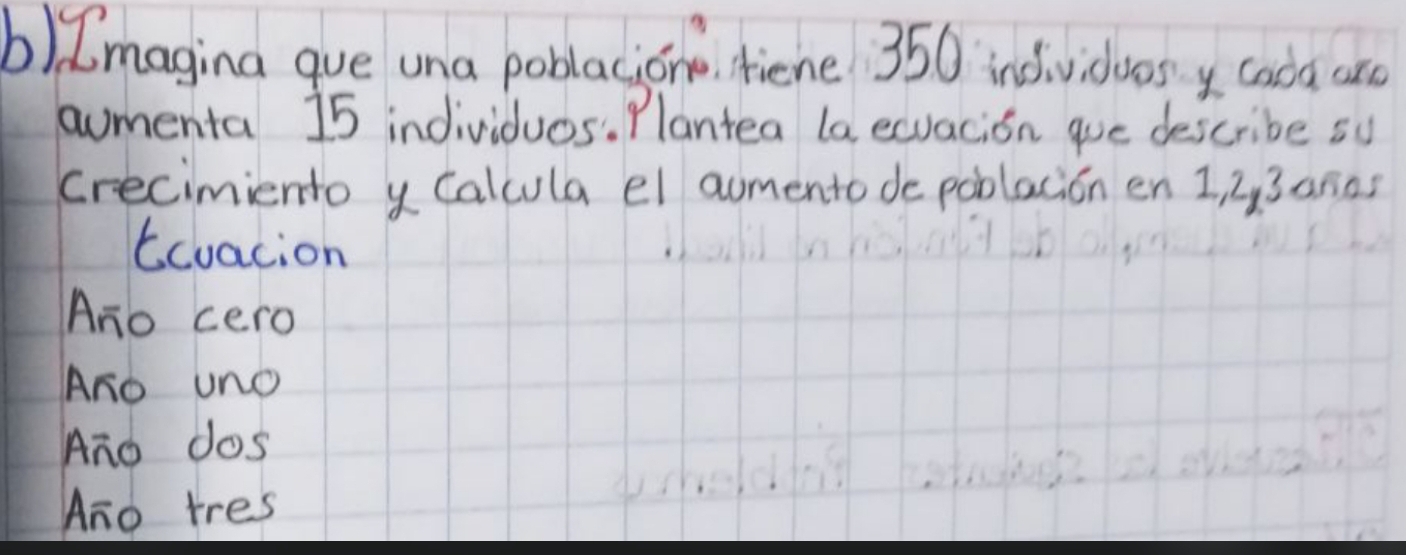 b) Imagina que una población tiene 350 individuos y cada año
aumenta 15 individuos. Plantea la ecuación que describe su
crecimiento y calcula el aumento de población en 1,2,3 años
Ecuacion
Año cero
Año uno
Año dos
Año tres